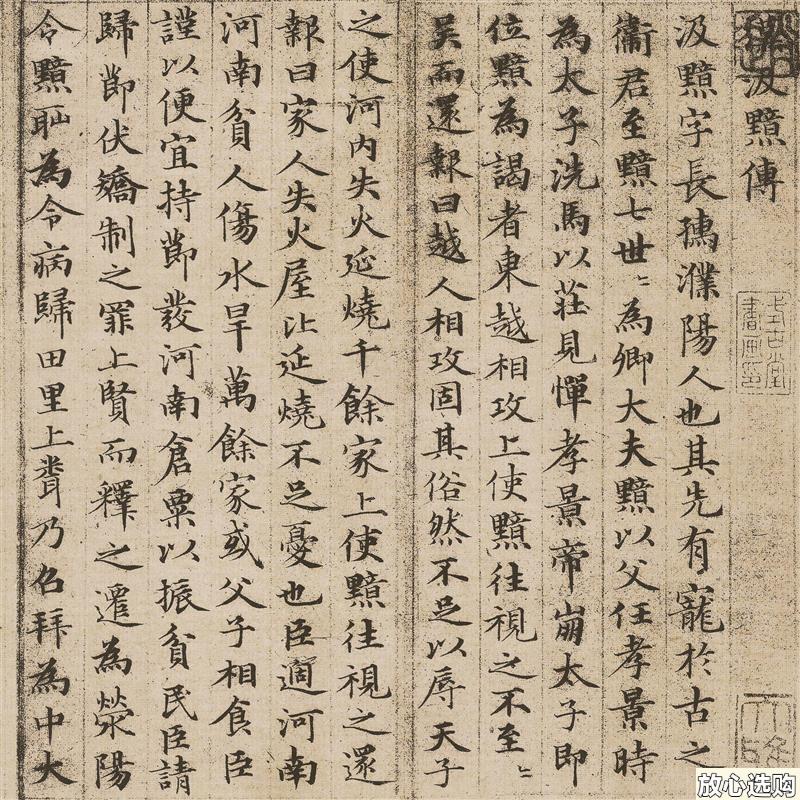 汲黯傳
汲黯字長孺濮陽人也其先有寵於古之
衞君至黯七世〻為卿大夫黯以父任孝景時
為太子洗馬以莊見憚孝景帝崩太子即
位黯為謁者東越相攻上使黯往視之不至〻
吴而還報曰越人相攻固其俗然不足以辱天子
之使河内失火延燒千餘家上使黯往視之還
報曰家人失火屋比延燒不足憂也臣適河南
河南貧人傷水旱萬餘家或父子相食臣
謹以便宜持節發河南倉粟以振貧民臣請
歸節伏矯制之罪上賢而釋之遷為滎陽
令黯恥為令病歸田里上聞乃召拜為中大
放心选购